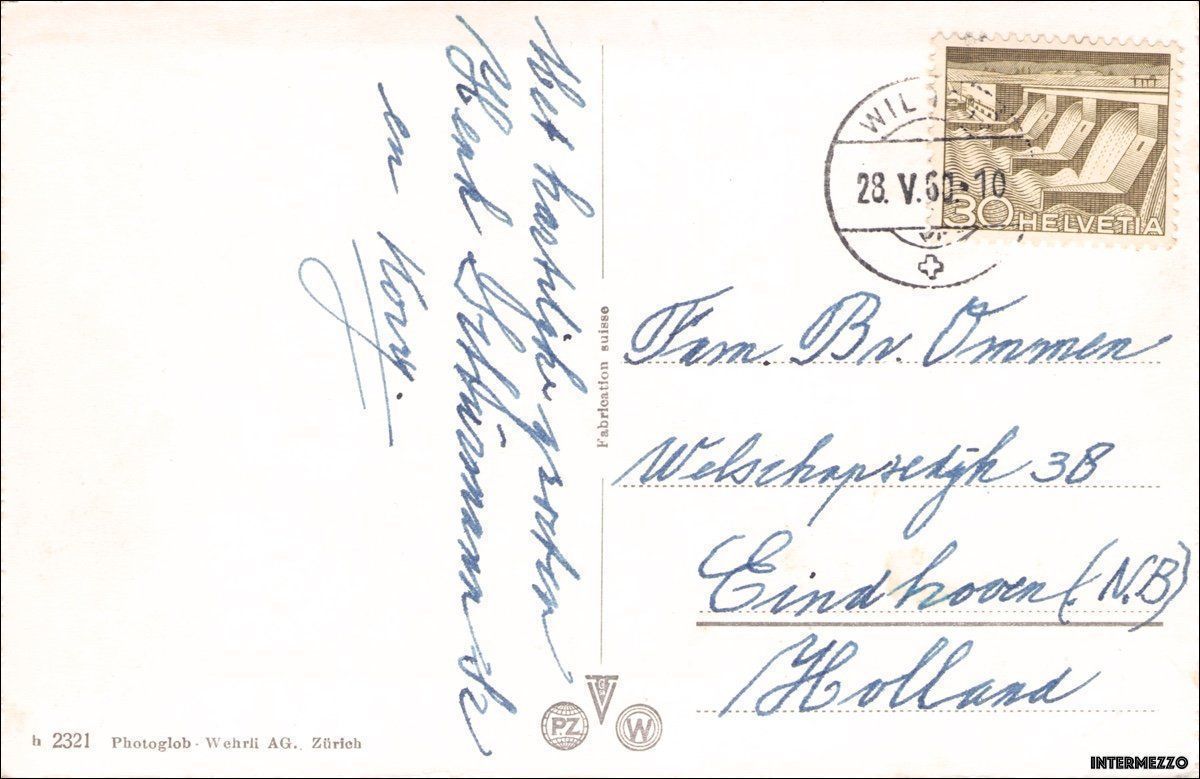 Met hartelijke groeten
Henk
en
WIL
28. V. 60.-10
30 HELVETIA
Fabrication suisse
Fam. Br. Ommen
Welschapsedijk 38
Eindhoven (N.B)
Holland
PZ
W
h 2321 Photoglob-Wehrli AG., Zürich
INTERMEZZO